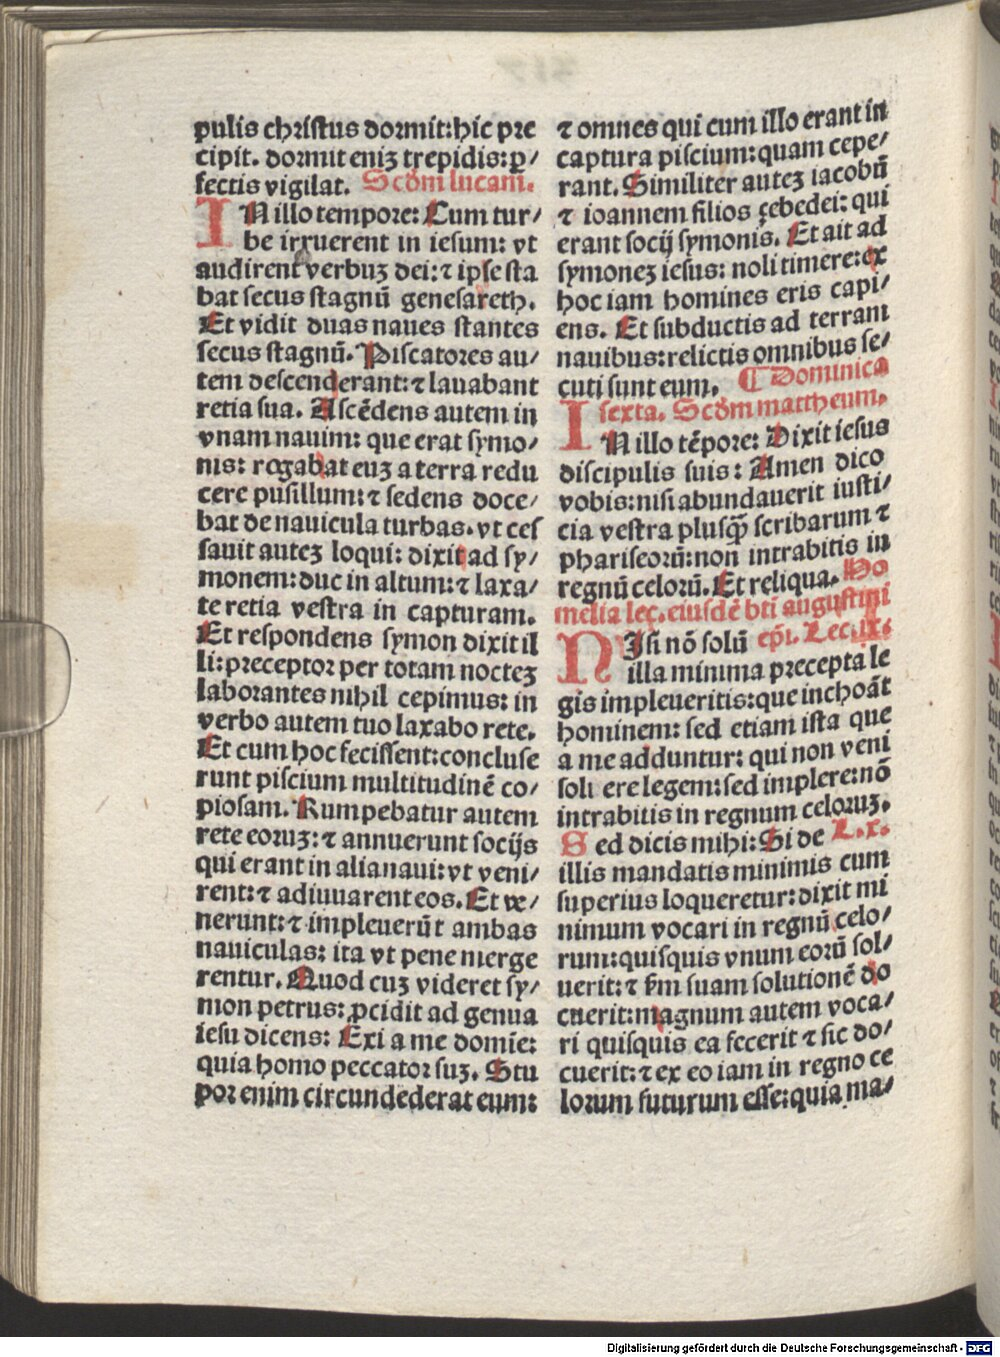 pulis christus dormit: hic pre
cipit. dormit eniꝫ trepidis: ꝑ/
fectis vigilat. Scd̃m lucam.
IN illo tempore: Cum tur/
be irruerent in iesum: vt
audirent verbuꝫ dei: ⁊ ipse sta
bat secus stagnũ genesareth.
Et vidit duas naues stantes
secus stagnũ. Piscatores au/
tem descenderant: ⁊ lauabant
retia sua. Ascẽdens autem in
vnam nauim: que erat symo/
nis: rogabat euꝫ a terra redu
cere pusillum: ⁊ sedens doce/
bat de nauicula turbas. vt ces
sauit auteꝫ loqui: dixit ad sy/
monem: duc in altum: ⁊ laxa/
te retia vestra in capturam.
Et respondens symon dixit il
li: preceptor per totam nocteꝫ
laborantes nihil cepimus: in
verbo autem tuo laxabo rete.
Et cum hoc fecissent: concluse
runt piscium multitudinẽ co/
piosam. Rumpebatur autem
rete eoruꝫ: ⁊ annuerunt socijs
qui erant in alia naui: vt veni/
rent: ⁊ adiuuarent eos. Et ve/
nerunt: ⁊ impleuerũt ambas
nauiculas: ita vt pene merge
rentur. Quod cuꝫ videret sy/
mon petrus: ꝓcidit ad genua
iesu dicens: Exi a me domĩe:
quia homo peccator suꝫ. Stu
por enim circundederat eum:
⁊ omnes qui cum illo erant in
captura piscium: quam cepe/
rant. Similiter auteꝫ iacobũ
⁊ ioannem filios çebedei: qui
erant socij symonis. Et ait ad
symoneꝫ iesus: noli timere: ex
hoc iam homines eris capi/
ens. Et subductis ad terram
nauibus: relictis omnibus se/
cuti sunt eum. ¶ Dominica
sexta. Scd̃m mattheum.
IN illo tẽpore: Dixit iesus
discipulis suis: Amen dico
vobis: nisi abundauerit iusti/
cia vestra plusꝙ̃ scribarum ⁊
phariseorũ: non intrabitis in
regnũ celorũ. Et reliqua. Ho
melia lec. eiusdẽ bti augustini
NIsi nõ solũ ep̃i. Lec. ix.
illa minima precepta le
gis impleueritis: que inchoãt
hominem: sed etiam ista que
a me adduntur: qui non veni
soluere legem: sed implere: nõ
intrabitis in regnum celoruꝫ.
Sed dicis mihi: Si de L. x.
illis mandatis minimis cum
superius loqueretur: dixit mi
nimum vocari in regnũ celo/
rum: quisquis vnum eorũ sol/
uerit: ⁊ ẜm suam solutionẽ do
cuerit: magnum autem voca/
ri quisquis ea fecerit ⁊ sic do/
cuerit: ⁊ ex eo iam in regno ce
lorum futurum esse: quia ma/
Digitalisierung gefördert durch die Deutsche Forschungsgemeinschaft - DFG